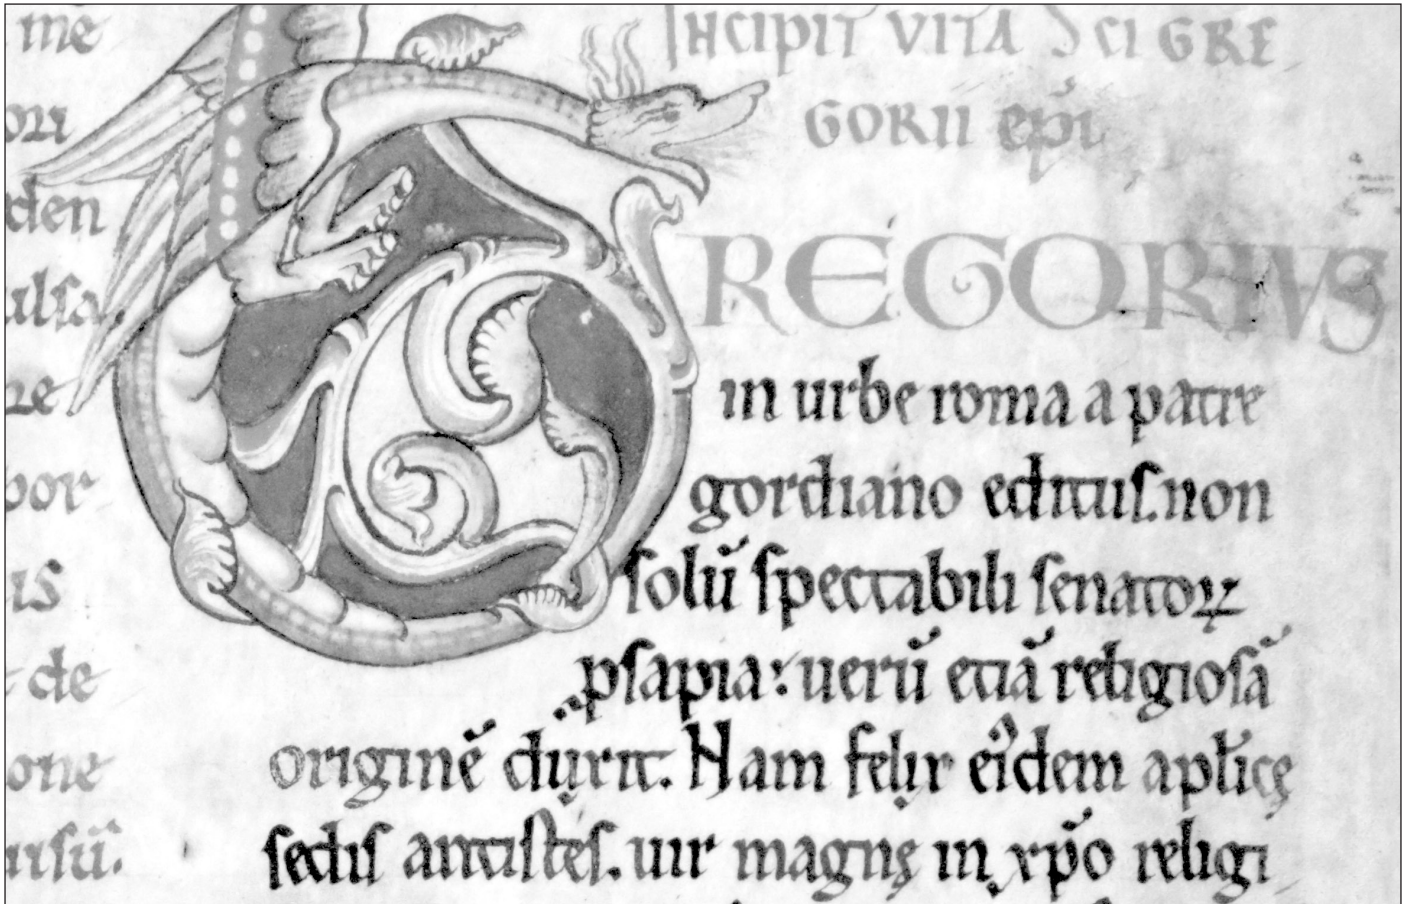 me
ori
den
ulsa
re
por
is
de
one
INCIPIT VITA SCI GRE
GORII epi
GREGORIUS
in urbe roma a patre
gordiano editus. non
solū spectabili senatoꝝ
psapia: uerū etiā religiosā
originē duxit. Nam felix eidem aplicę
sedis antistes. uir magnę in xp̄o religi